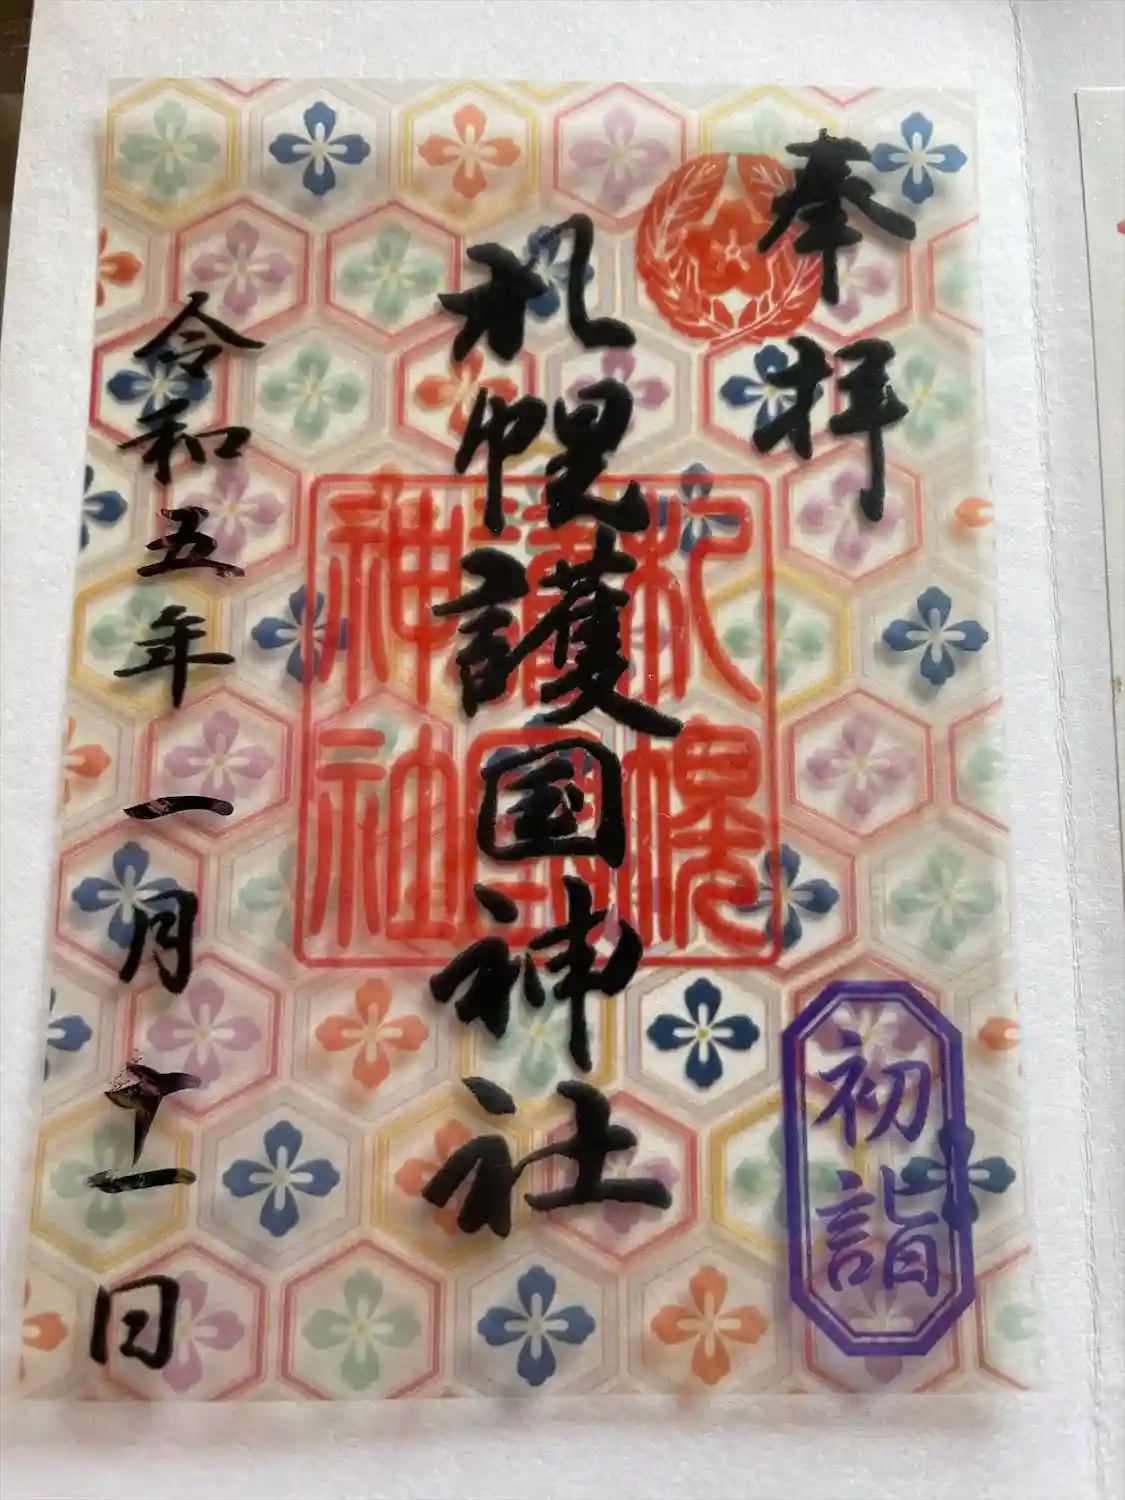 奉拝
札幌護国神社
札幌
護國
神社
令和五年一月十一日
初詣